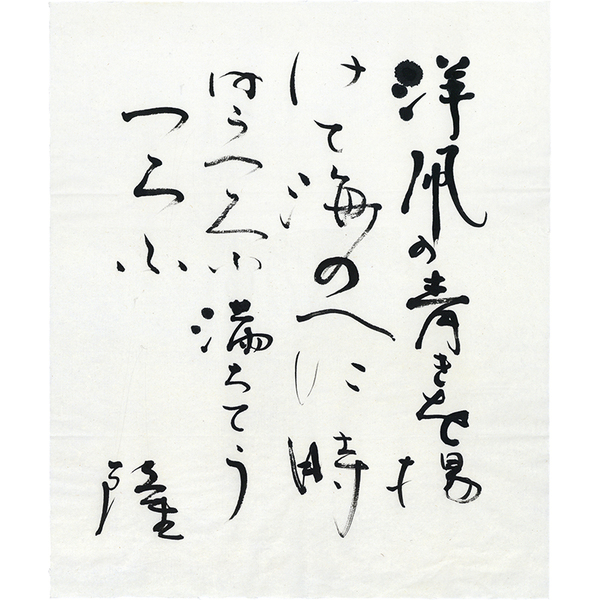 洋凧の青きを揚
けて海のへに時
はう〱に満ちてう
つろふ
隆